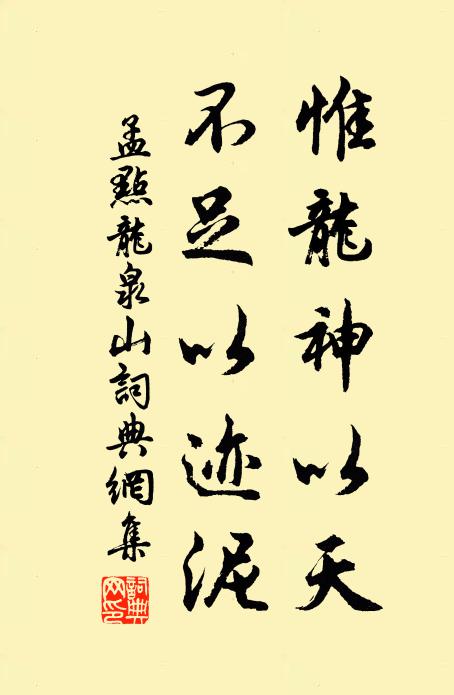 惟龍神以天
不足以迹泥
孟點龍泉山詞典網集
詞典網印